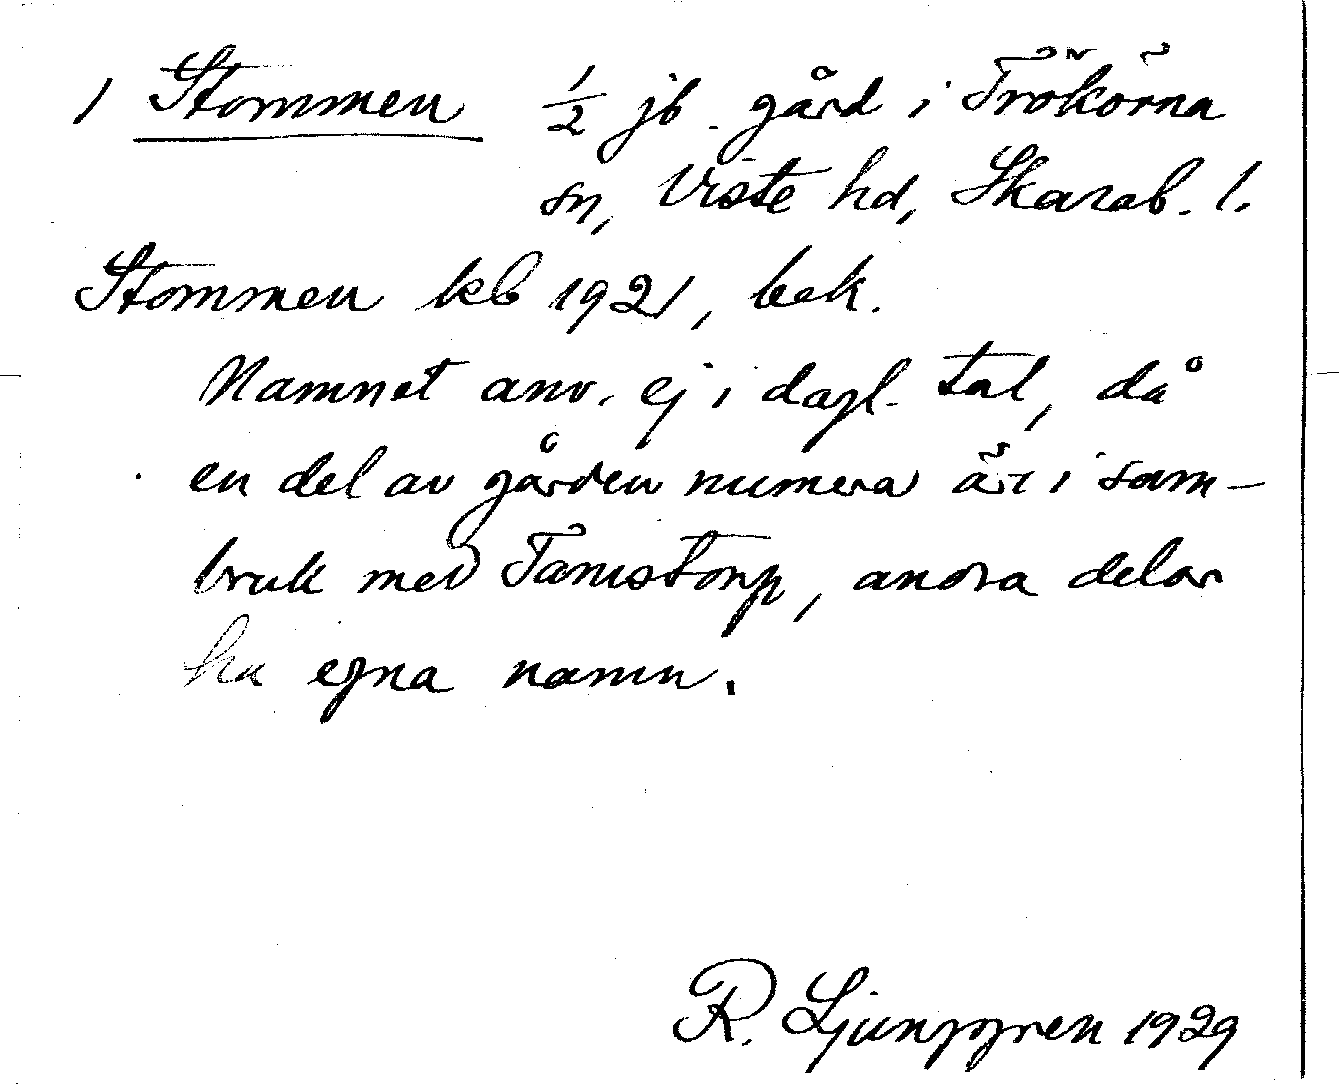 1 Stommen 1/2 jb. gård i Trökörna
sn, Viste hd, Skarab. l.
Stommen kb 1921, bek.
Namnet anv. ej i dagl. tal, då
en del av gården numera är i sam-
bruk med Tamstorp, andra delar
ha egna namn.
R. Ljunggren 1929